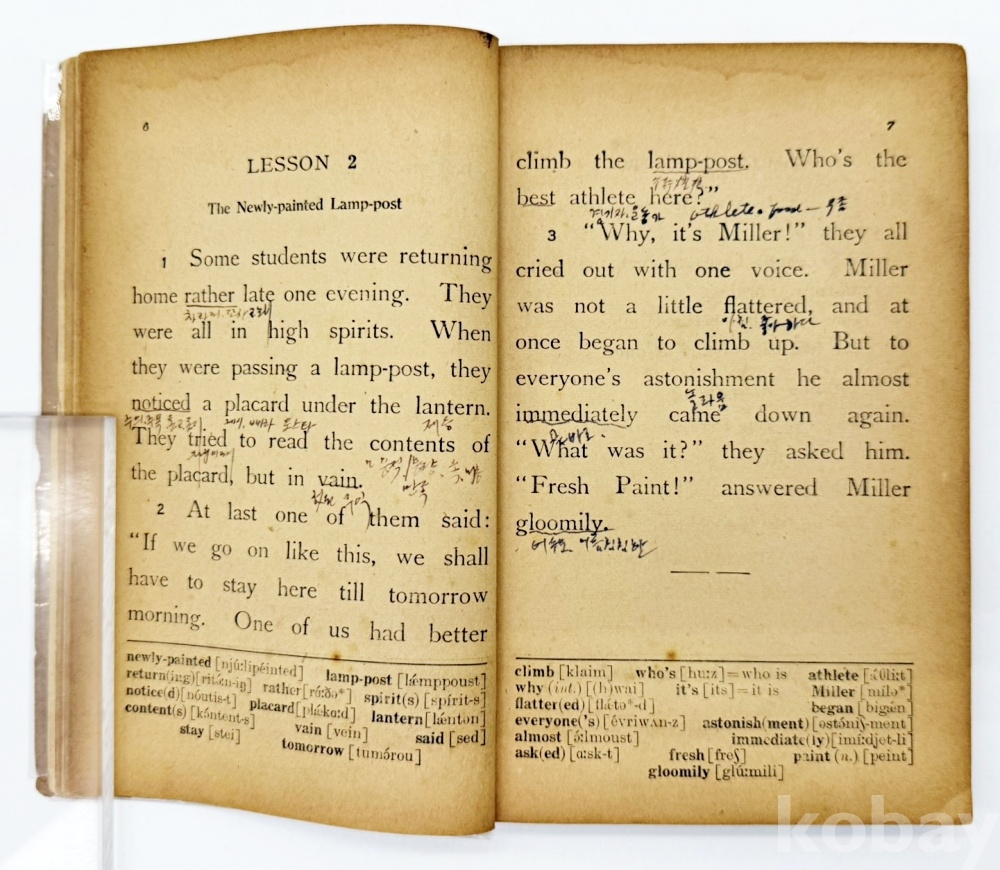 6
LESSON 2
The Newly-painted Lamp-post
1 Some students were returning
home rather late one evening. They
were all in high spirits. When
they were passing a lamp-post, they
noticed a placard under the lantern.
They tried to read the contents of
the placard, but in vain.
2 At last one of them said:
"If we go on like this, we shall
have to stay here till tomorrow
morning. One of us had better
newly-painted [njú:lipéinted] lamp-post [lǽmppoust]
return(ing) [ritə́:n-iŋ] rather [rɑ́:ðə*] spirit(s) [spírit-s]
notice(d) [nóutis-t] placard [plǽkɑ:d] lantern [lǽntən]
content(s) [kɔ́ntent-s] vain [vein] said [sed]
stay [stei] tomorrow [tumɔ́rou]
7
climb the lamp-post. Who's the
best athlete here?"
athlete
3 "Why, it's Miller!" they all
cried out with one voice. Miller
was not a little flattered, and at
아첨. 좋아하다
once began to climb up. But to
everyone's astonishment he almost
놀라움
immediately came down again.
"What was it?" they asked him.
"Fresh Paint!" answered Miller
gloomily.
climb [klaim] who's [hu:z]=who is athlete [ǽθli:t]
why (int.) [(h)wai] it's [its]=it is Miller [milə*]
flatter(ed) [flǽtə*-d] began [bigǽn]
everyone('s) [évriwʌn-z] astonish(ment) [əstɔ́niʃ-ment]
almost [ɔ́:lmoust] immediate(ly) [imí:djet-li]
ask(ed) [ɑ:sk-t] fresh [freʃ] paint (n.) [peint]
gloomily [glú:mili]
kobay